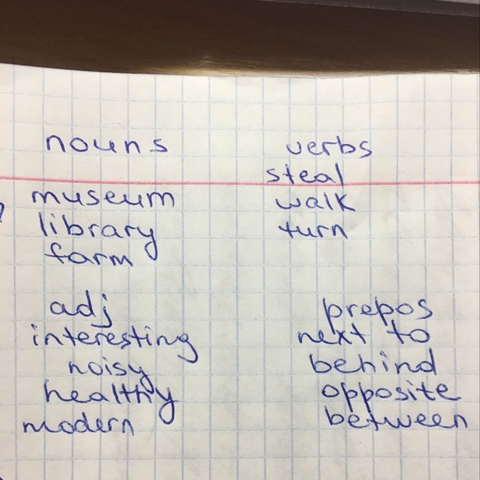 nouns
museum
library
farm
verbs
steal
walk
turn
adj
interesting
noisy
healthy
modern
prepos
next to
behind
opposite
between